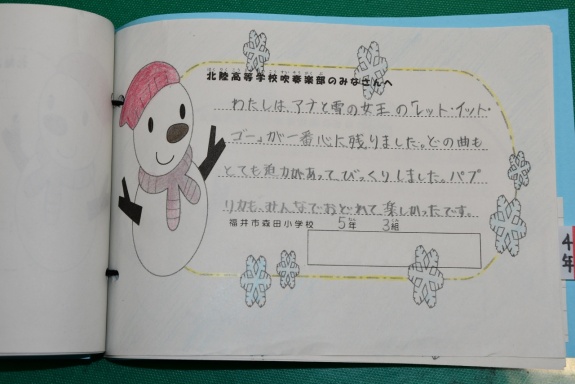 北陸高等学校吹奏楽部のみなさんへ
わたしは、アナと雪の女王の「レット・イット・
ゴー」が一番心に残りました。どの曲も
とても迫力があって、びっくりしました。パプ
リカも、みんなでおどれて楽しかったです。
福井市森田小学校 5年 3組
4年